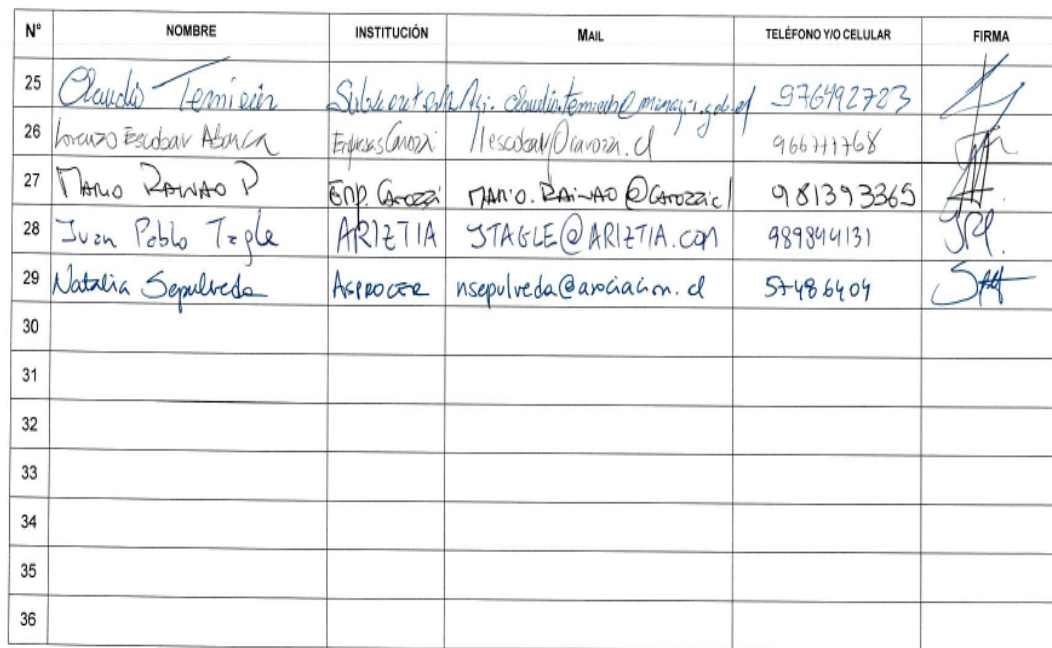 N° NOMBRE INSTITUCIÓN MAIL TELÉFONO Y/O CELULAR FIRMA
25 Claudio Ternicién 976492723
26 Lorenzo Escobar Abarca Empresas Carozzi lescobar@carozzi.cl 966771768
27 MARIO RAINAO P Emp. Carozzi MARIO.RAINAO@Carozzi.cl 981393365
28 Juan Pablo Tagle ARIZTIA JTAGLE@ARIZTIA.com 989844131 JPT.
29 Natalia Sepulveda ASPROCER nsepulveda@asociacion.cl 57486404
30
31
32
33
34
35
36